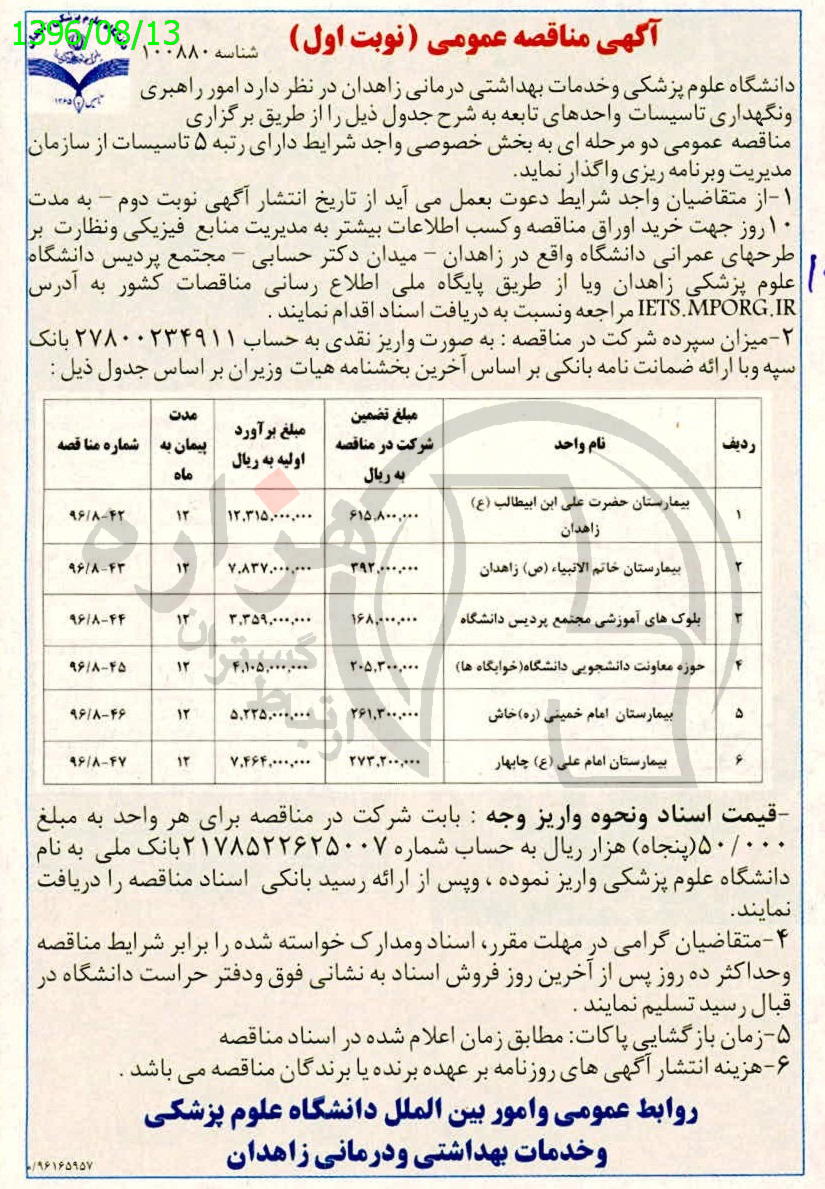 1396/08/13
آگهی مناقصه عمومی (نوبت اول)
شناسه ۱۰۰۸۸۰
دانشگاه علوم پزشکی وخدمات بهداشتی درمانی زاهدان در نظر دارد امور راهبری
ونگهداری تاسیسات واحدهای تابعه به شرح جدول ذیل را از طریق برگزاری
مناقصه عمومی دو مرحله ای به بخش خصوصی واجد شرایط دارای رتبه ۵ تاسیسات از سازمان
مدیریت وبرنامه ریزی واگذار نماید.
۱-از متقاضیان واجد شرایط دعوت بعمل می آید از تاریخ انتشار آگهی نوبت دوم – به مدت
۱۰روز جهت خرید اوراق مناقصه وکسب اطلاعات بیشتر به مدیریت منابع فیزیکی ونظارت بر
طرحهای عمرانی دانشگاه واقع در زاهدان – میدان دکتر حسابی – مجتمع پردیس دانشگاه
علوم پزشکی زاهدان ویا از طریق پایگاه ملی اطلاع رسانی مناقصات کشور به آدرس
IETS.MPORG.IR مراجعه ونسبت به دریافت اسناد اقدام نمایند .
۲-میزان سپرده شرکت در مناقصه : به صورت واریز نقدی به حساب ۲۷۸۰۰۲۳۴۹۱۱ بانک
سپه ویا ارائه ضمانت نامه بانکی بر اساس آخرین بخشنامه هیات وزیران بر اساس جدول ذیل :
ردیف نام واحد مبلغ تضمین شرکت در مناقصه به ریال مبلغ برآورد اولیه به ریال مدت پیمان به ماه شماره منا قصه
۱ بیمارستان حضرت علی ابن ابیطالب (ع) زاهدان ۶۱۵,۸۰۰,۰۰۰ ۱۲,۳۱۵,۰۰۰,۰۰۰ ۱۲ ۹۶/۸-۴۲
۲ بیمارستان خاتم الانبیاء (ص) زاهدان ۳۹۲,۰۰۰,۰۰۰ ۷,۸۳۷,۰۰۰,۰۰۰ ۱۲ ۹۶/۸-۴۳
۳ بلوک های آموزشی مجتمع پردیس دانشگاه ۱۶۸,۰۰۰,۰۰۰ ۳,۳۵۹,۰۰۰,۰۰۰ ۱۲ ۹۶/۸-۴۴
۴ حوزه معاونت دانشجویی دانشگاه(خوابگاه ها) ۲۰۵,۳۰۰,۰۰۰ ۴,۱۰۵,۰۰۰,۰۰۰ ۱۲ ۹۶/۸-۴۵
۵ بیمارستان امام خمینی (ره)خاش ۲۶۱,۳۰۰,۰۰۰ ۵,۲۲۵,۰۰۰,۰۰۰ ۱۲ ۹۶/۸-۴۶
۶ بیمارستان امام علی (ع) چابهار ۲۷۳,۲۰۰,۰۰۰ ۷,۴۶۴,۰۰۰,۰۰۰ ۱۲ ۹۶/۸-۴۷
هزاره
-قیمت اسناد ونحوه واریز وجه : بابت شرکت در مناقصه برای هر واحد به مبلغ
۵۰/۰۰۰(پنجاه) هزار ریال به حساب شماره ۲۱۷۸۵۲۲۶۲۵۰۰۷بانک ملی به نام
دانشگاه علوم پزشکی واریز نموده ، وپس از ارائه رسید بانکی اسناد مناقصه را دریافت
نمایند.
۴-متقاضیان گرامی در مهلت مقرر، اسناد ومدارک خواسته شده را برابر شرایط مناقصه
وحداکثر ده روز پس از آخرین روز فروش اسناد به نشانی فوق ودفتر حراست دانشگاه در
قبال رسید تسلیم نمایند .
۵-زمان بازگشایی پاکات: مطابق زمان اعلام شده در اسناد مناقصه
۶-هزینه انتشار آگهی های روزنامه بر عهده برنده یا برندگان مناقصه می باشد .
روابط عمومی وامور بین الملل دانشگاه علوم پزشکی
وخدمات بهداشتی ودرمانی زاهدان
۹۶۱۶۵۹۵۷/